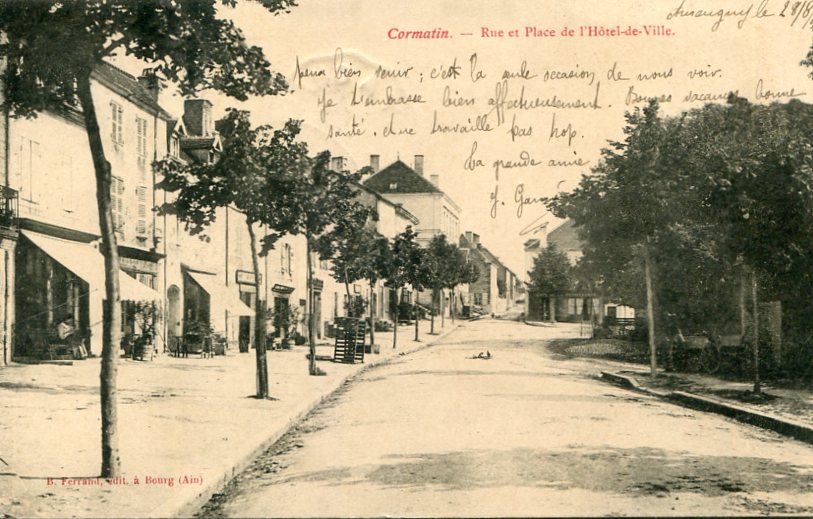 Cormatin. — Rue et Place de l'Hôtel-de-Ville.
le 28/8
peux bien venir ; c'est la seule occasion de nous voir.
Je t'embrasse bien affectueusement. Bonnes vacances bonne
santé. et ne travaille pas trop.
La grande amie
B. Ferrand, édit. à Bourg (Ain)